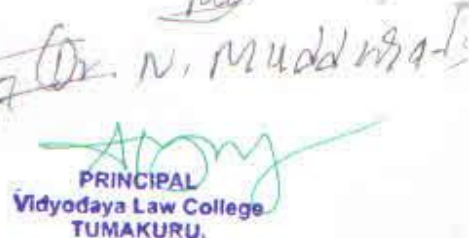 Dr. N. Mudd
PRINCIPAL
Vidyodaya Law College
TUMAKURU.